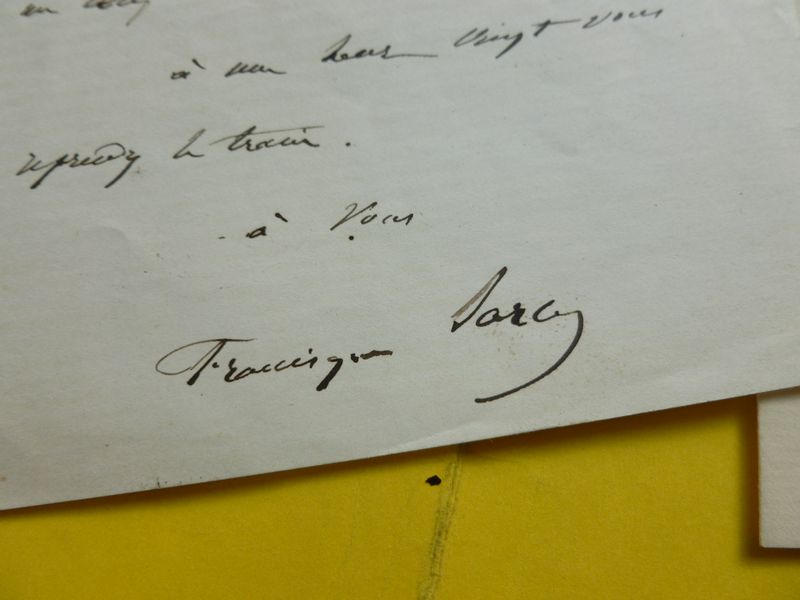 à une heure vingt vous
reprendrez le train.
à Vous
Francisque Sarcey